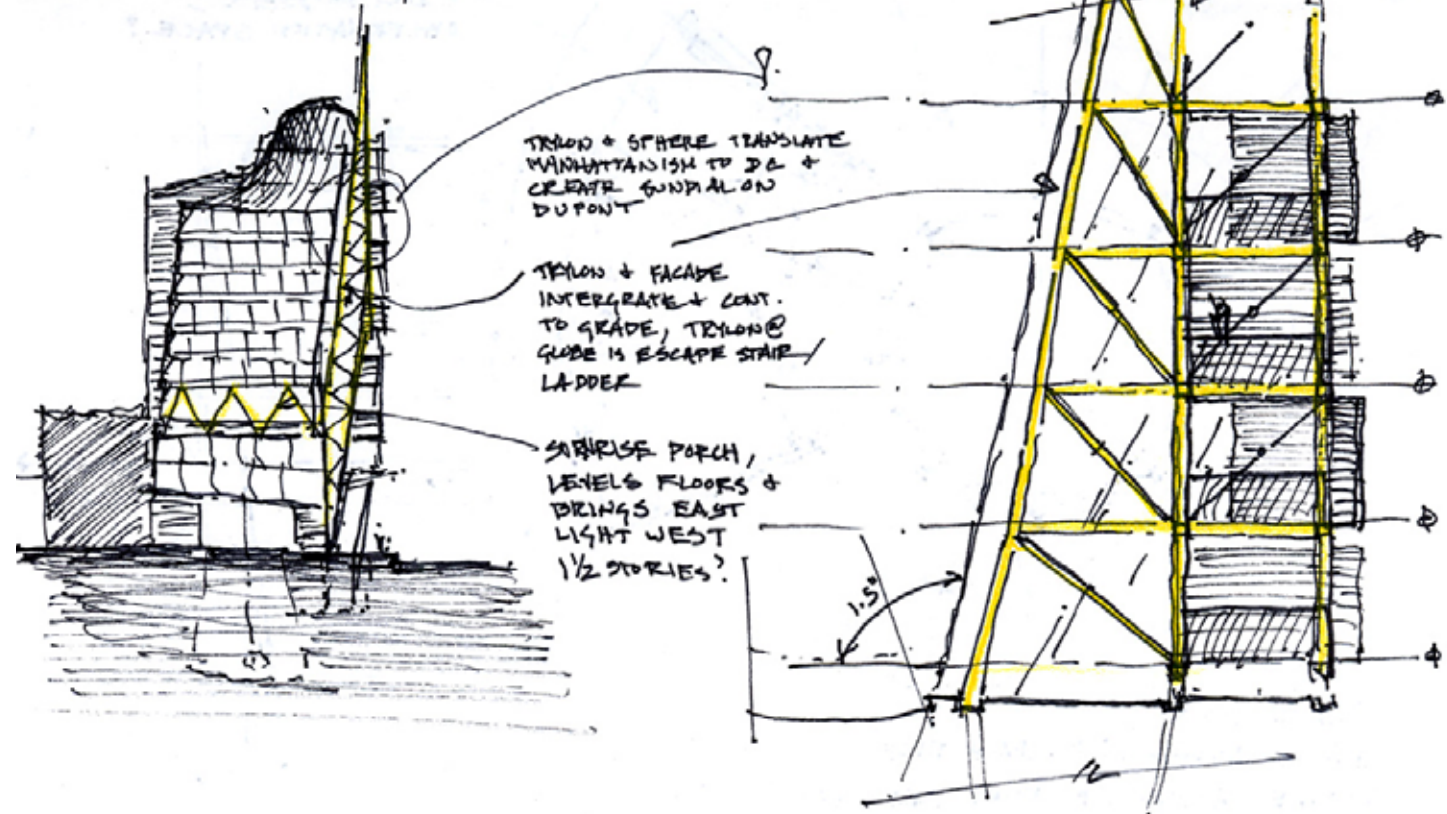 TRYLON & SPHERE TRANSLATE
MANHATTANISM TO DC &
CREATE SUNDIAL ON
DUPONT
TRYLON & FACADE
INTERGRATE & CONT.
TO GRADE, TRYLON @
GLOBE IS ESCAPE STAIR/
LADDER
SUNRISE PORCH,
LEVELS FLOORS &
BRINGS EAST
LIGHT WEST
1½ STORIES?
1.5°